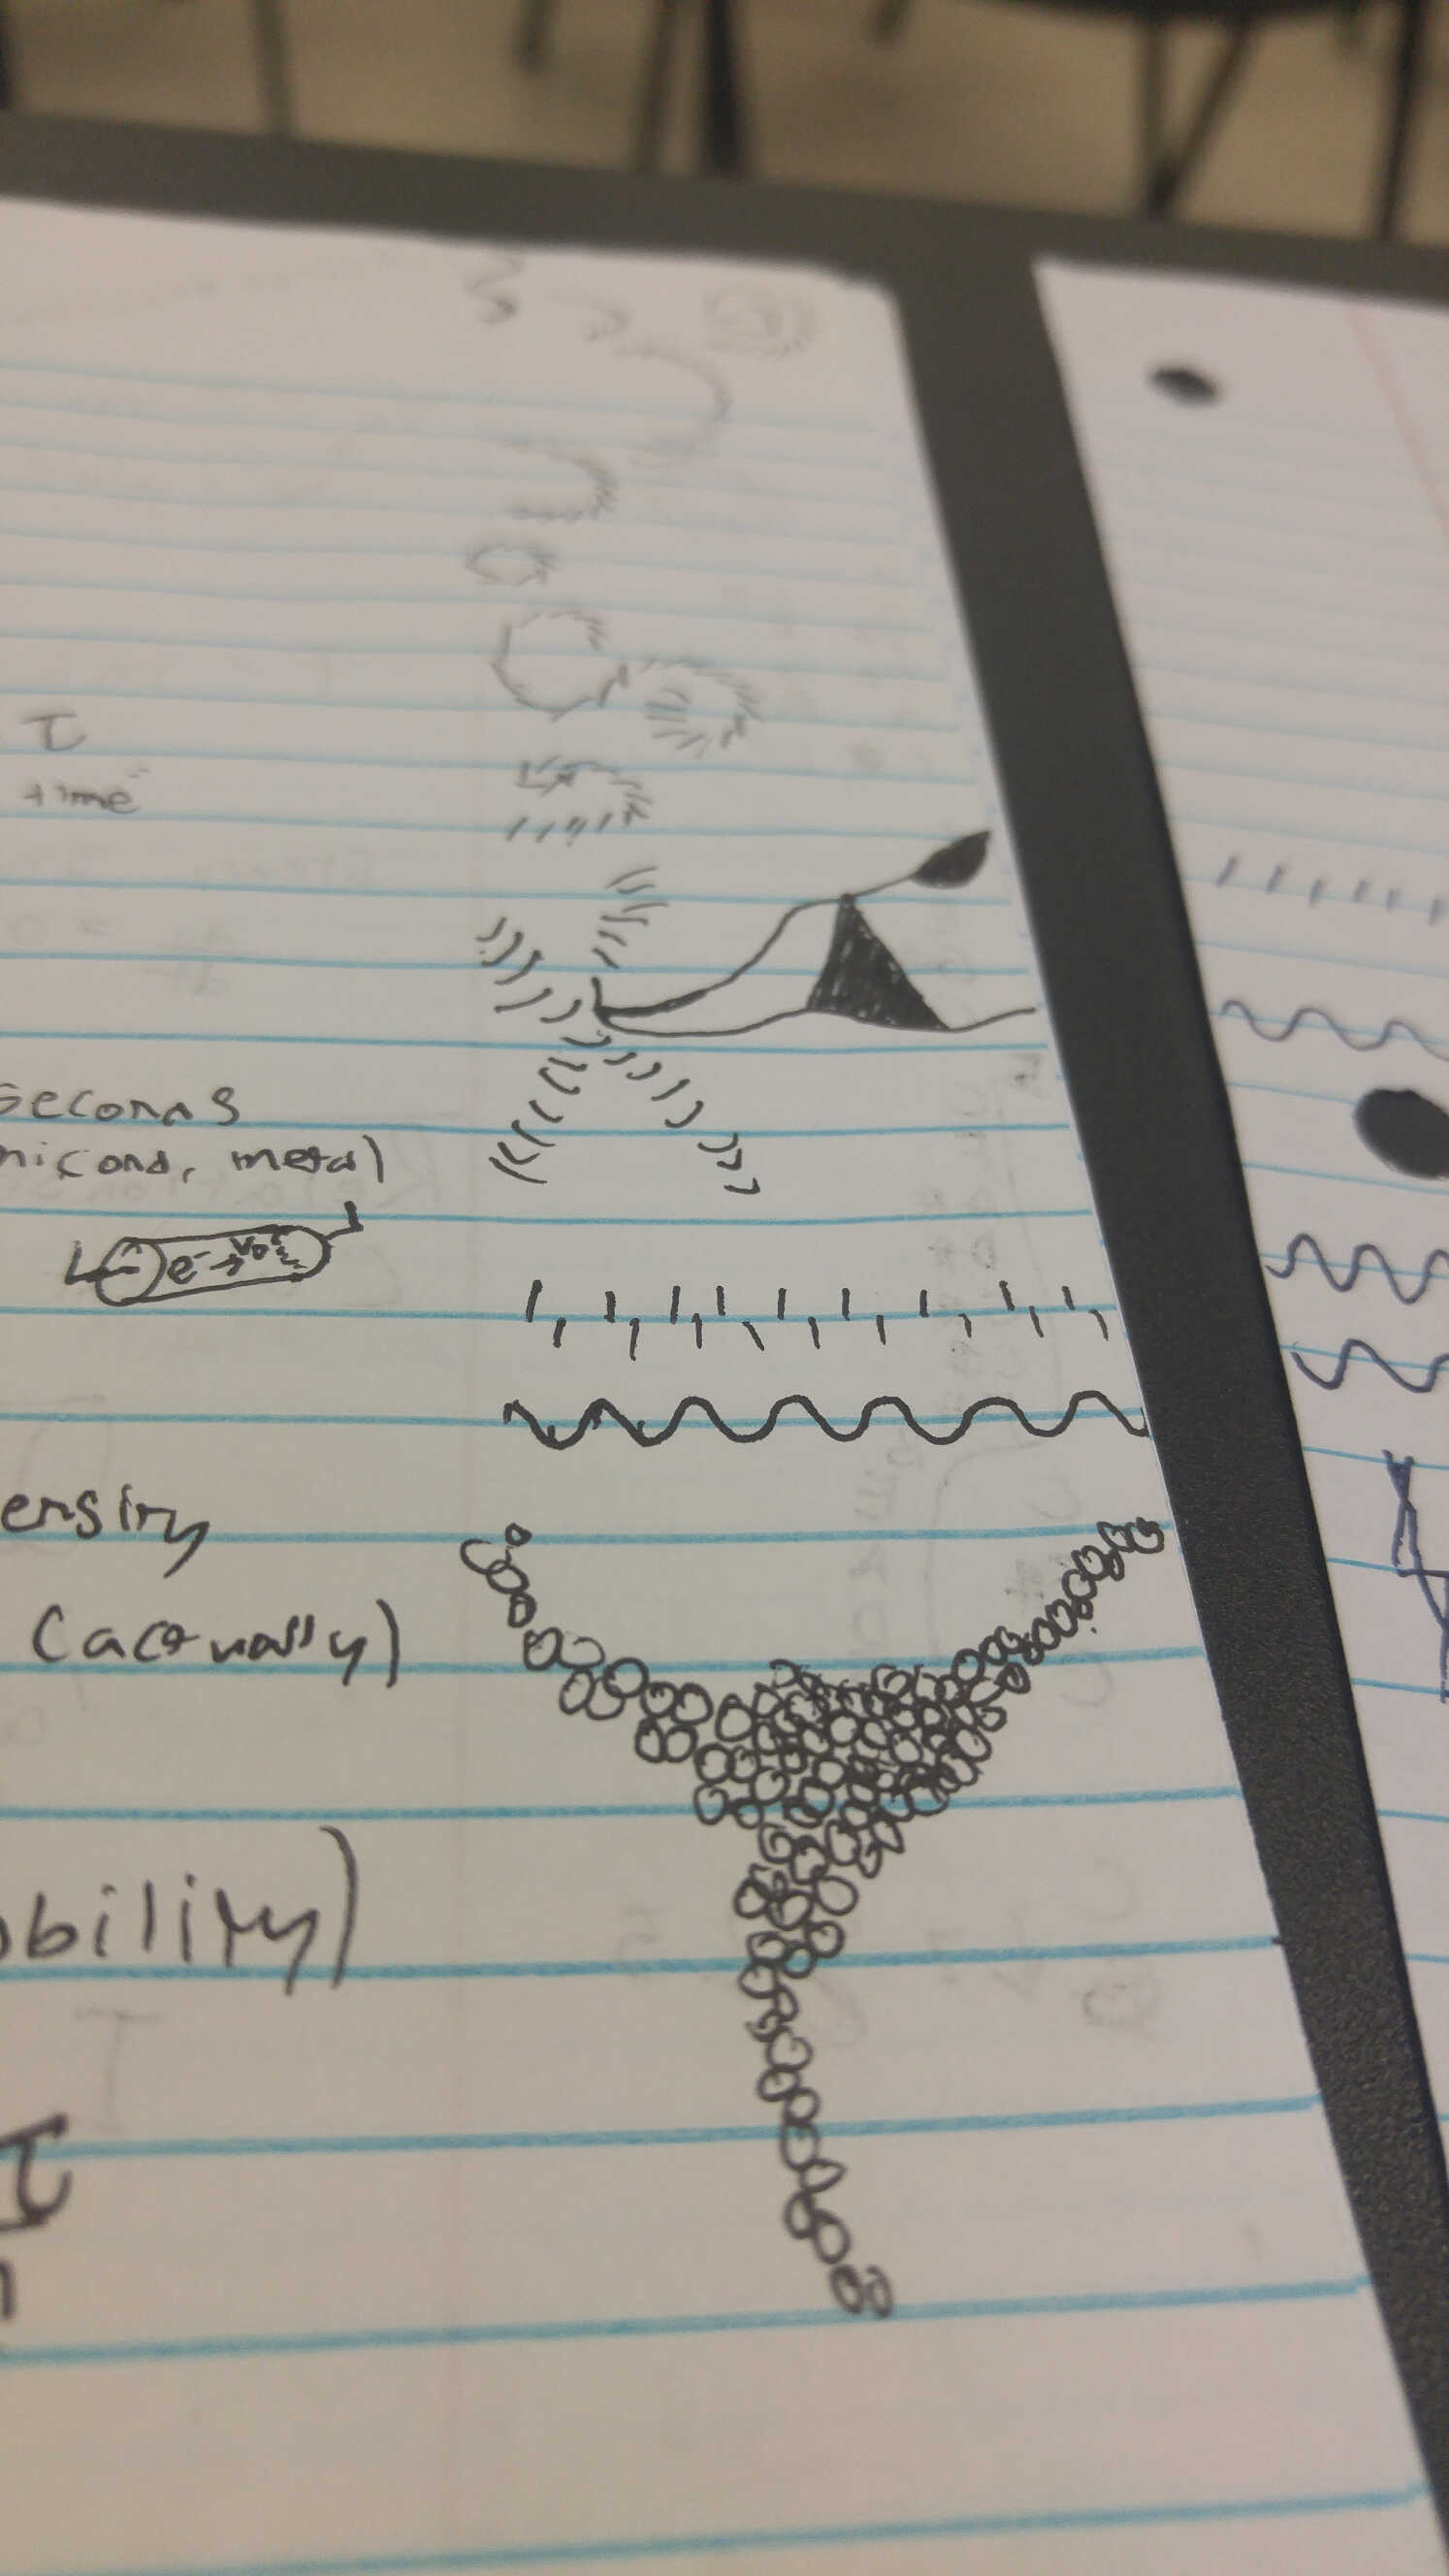 τ
time
seconds
nicond, metal
e⁻→V_D
ensity
(actually)
obility)
τ